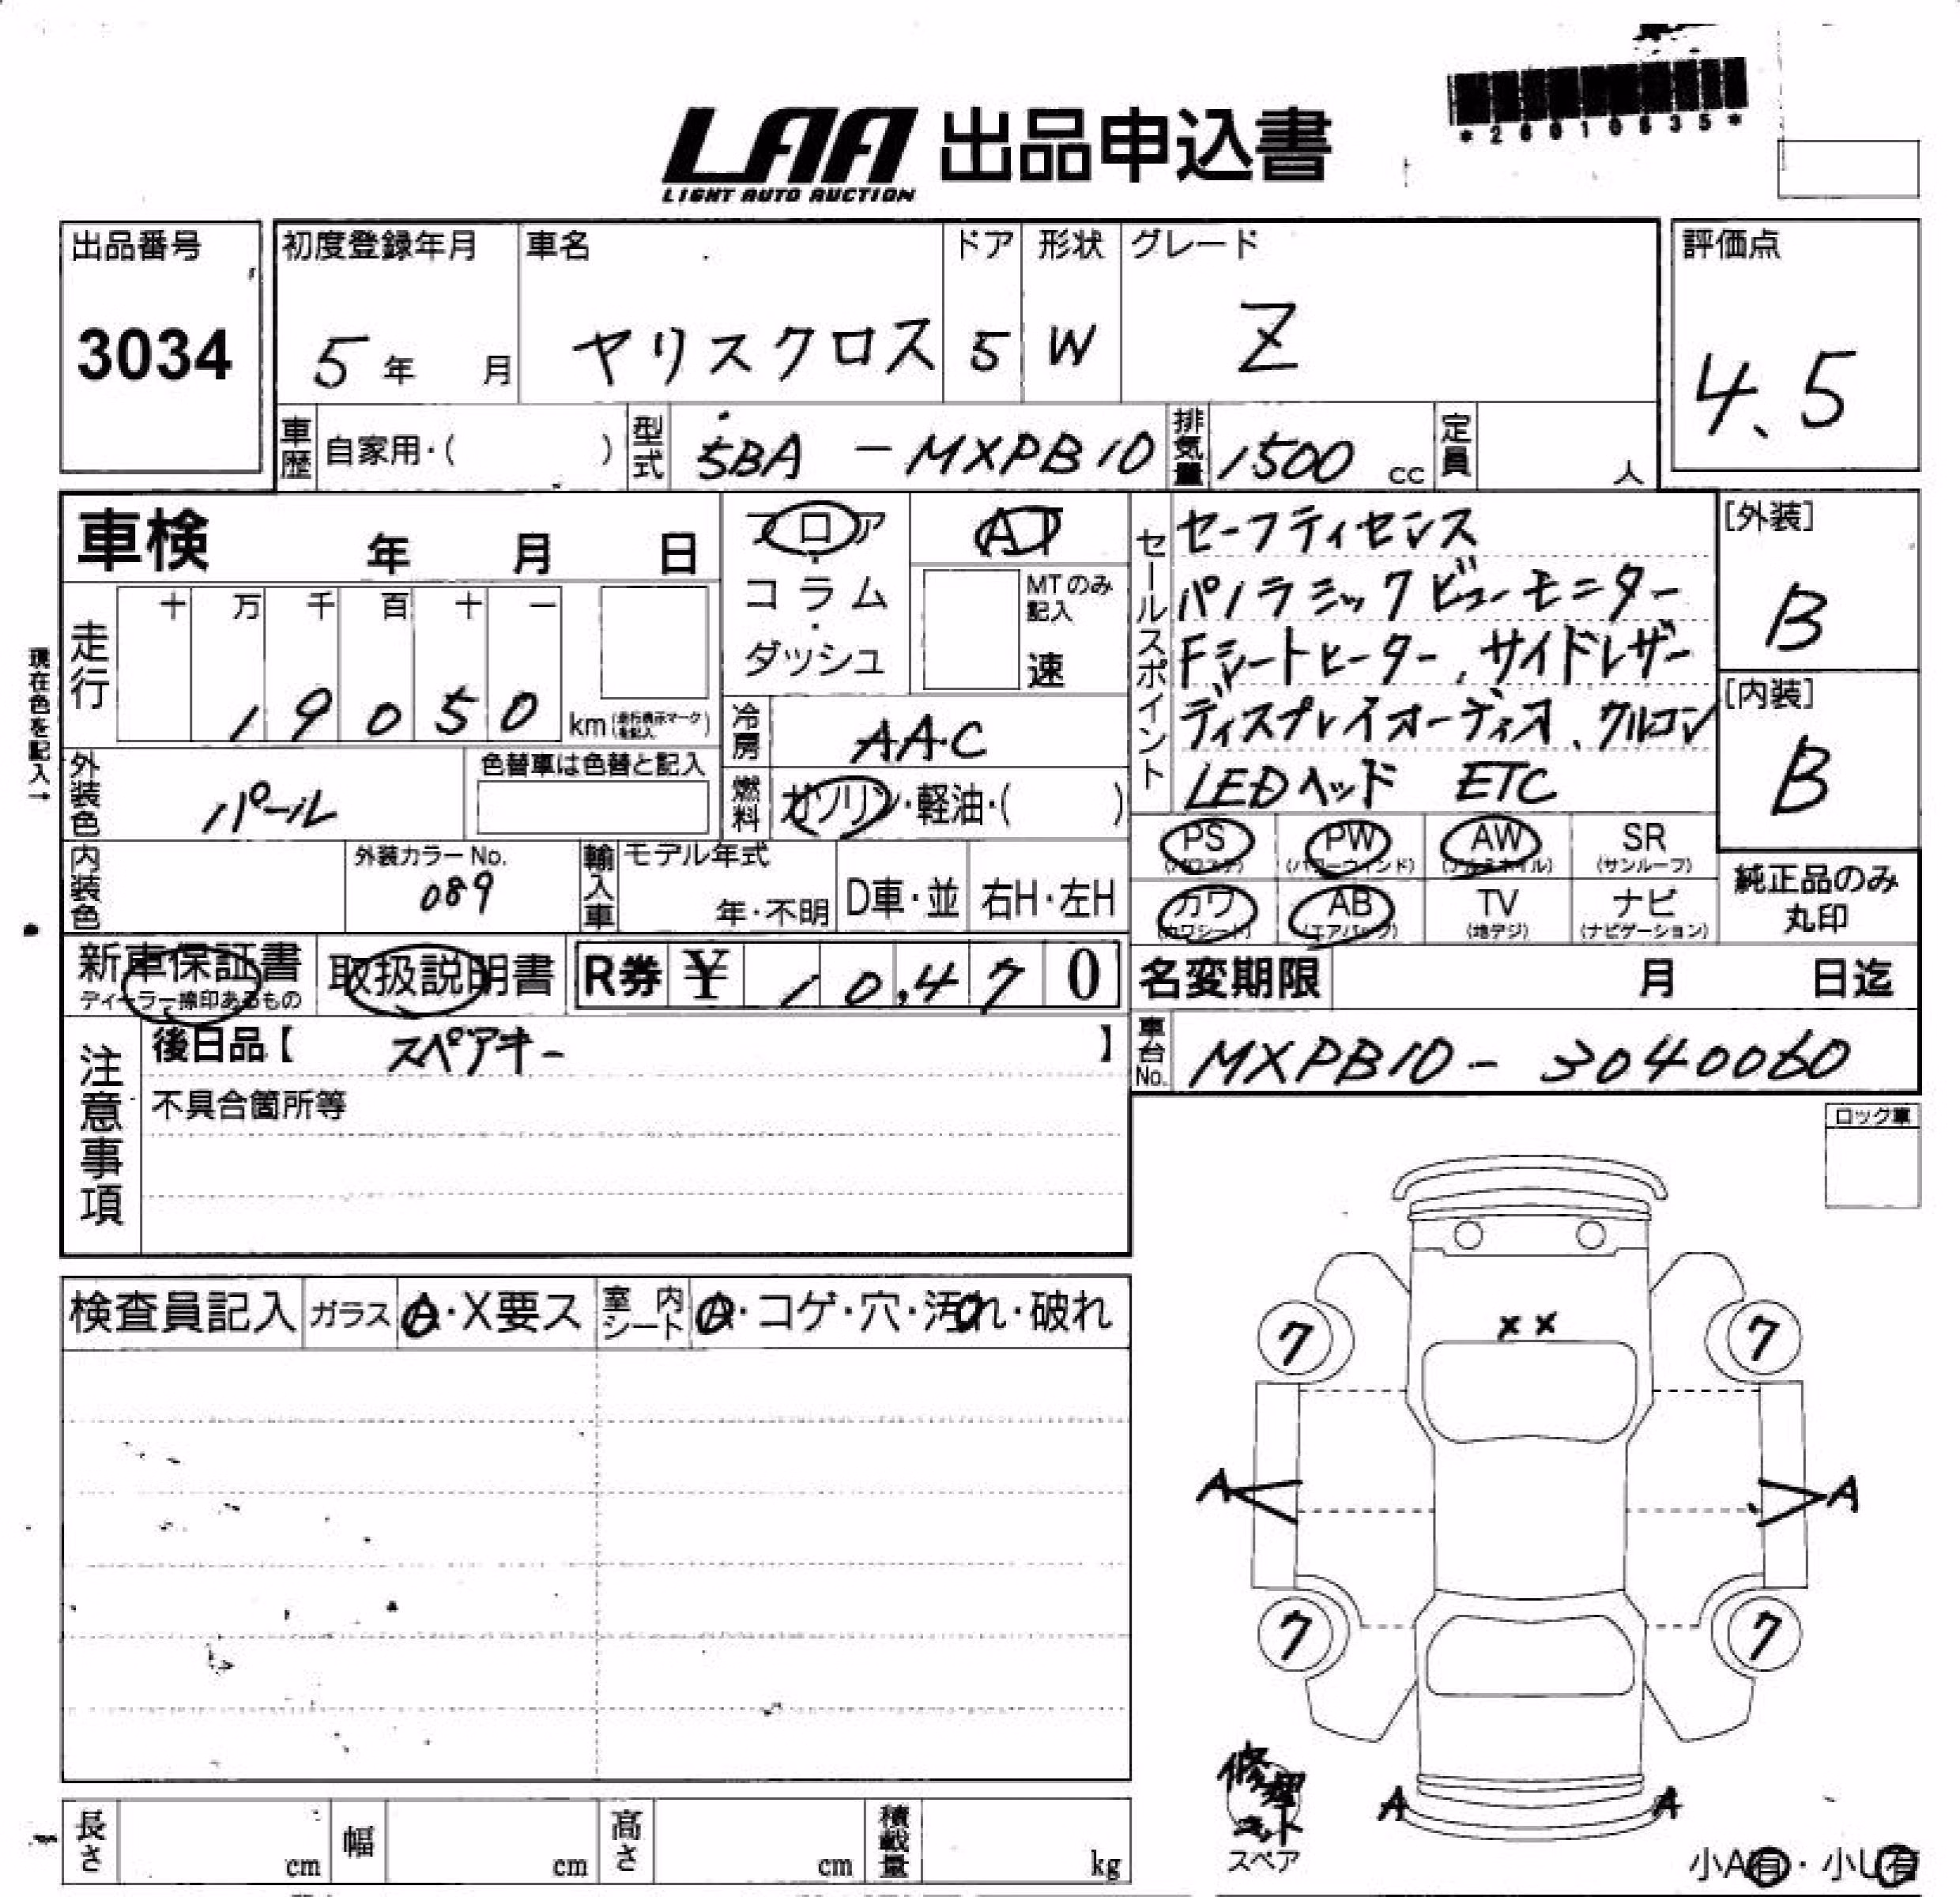 *26010635*
LAA 出品申込書
LIGHT AUTO AUCTION
出品番号
3034
初度登録年月
5年 月
車名
ヤリスクロス
ドア
5
形状
W
グレード
Z
評価点
4.5
車歴 自家用・( )
型式 5BA - MXPB10
排気量 1500 cc
定員 人
車検 年 月 日
フロア
・
コラム
・
ダッシュ
AT
MTのみ
記入
速
セールスポイント
セーフティセンス
パノラミックビューモニター
Fシートヒーター、サイドレザー
ディスプレイオーディオ、クルコン
LEDヘッド ETC
[外装]
B
[内装]
B
現在色を記入→
走行
十 万 千 百 十 一
1 9 0 5 0 km (走行表示マークを記入)
冷房 AAC
外装色 パール
色替車は色替と記入
燃料 ガソリン・軽油・( )
内装色
外装カラーNo.
089
輸入車
モデル年式
年・不明
D車・並
右H・左H
PS (パワステ)
PW (パワーウィンド)
AW (アルミホイル)
SR (サンルーフ)
カワ (カワシート)
AB (エアバッグ)
TV (地デジ)
ナビ (ナビゲーション)
純正品のみ
丸印
新車保証書
ディーラー捺印あるもの
取扱説明書
R券 ¥ 10,470
名変期限 月 日迄
注意事項
後日品【 スペアキー 】
不具合箇所等
車台No. MXPB10 - 3040060
ロック車
検査員記入
ガラス A・X要ス
室内シート A・コゲ・穴・汚れ・破れ
××
7 7
A A
7 7
修理キット
スペア
A A
小A有・小U有
長さ cm
幅 cm
高さ cm
積載量 kg